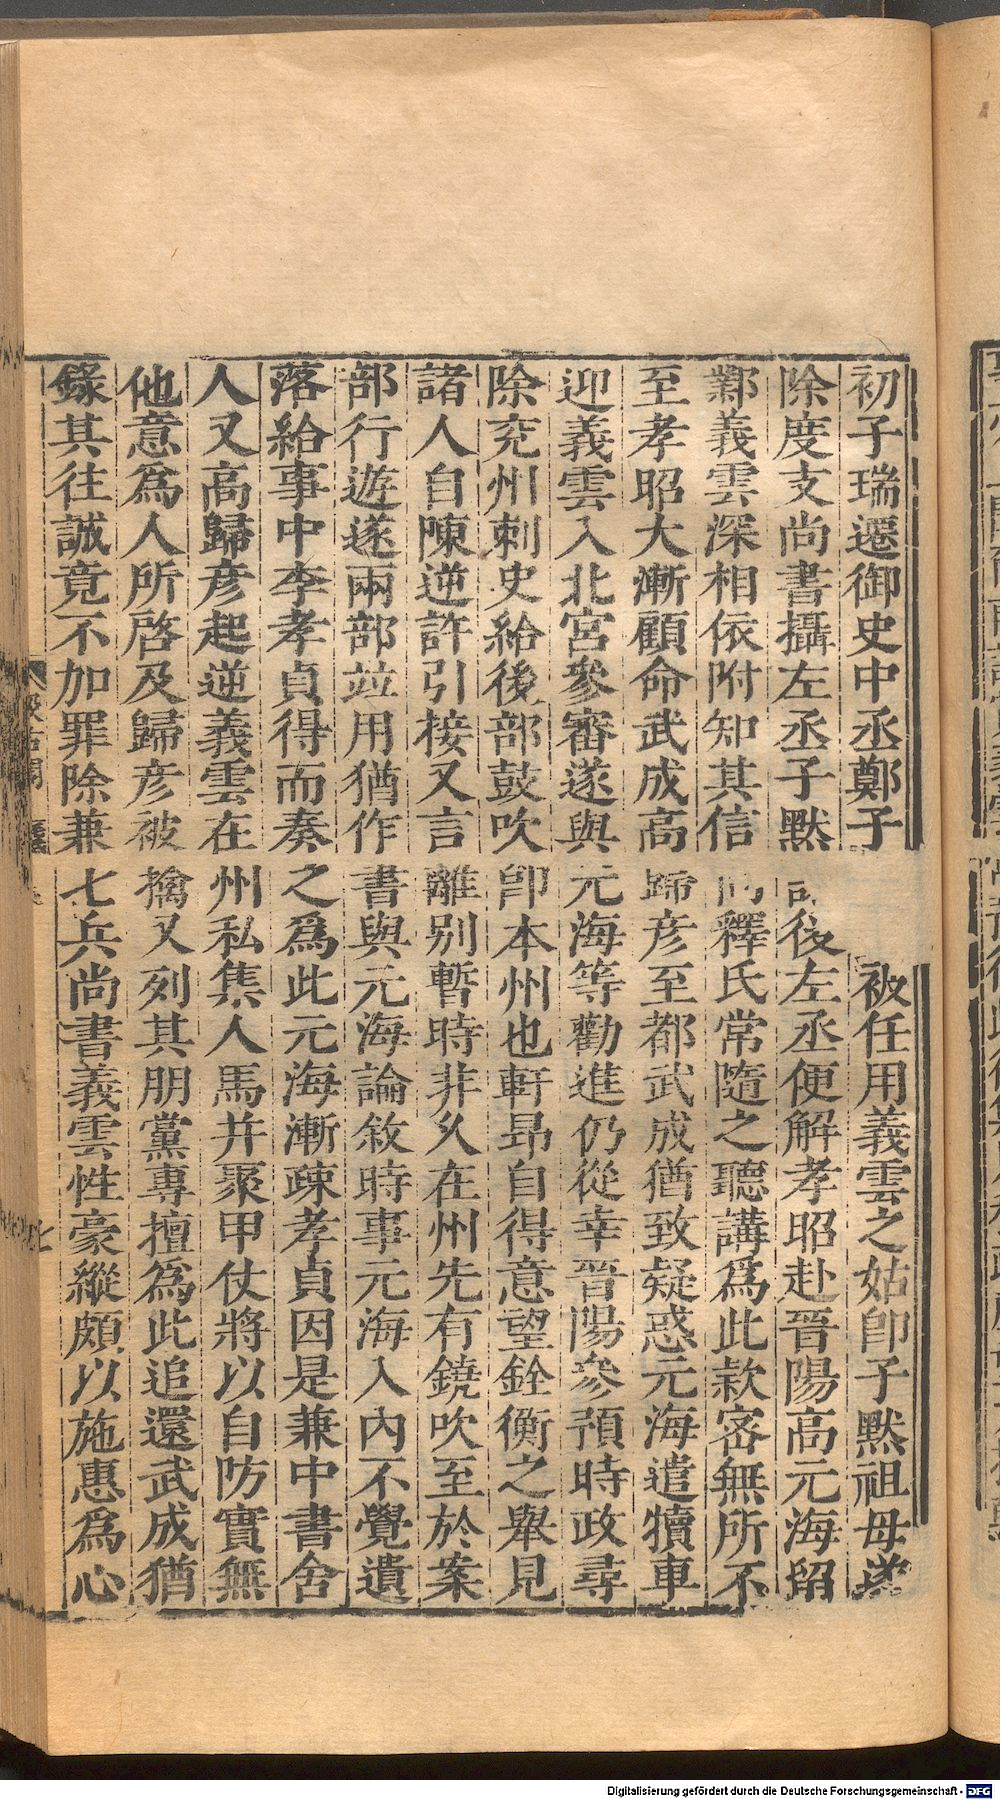 初子瑞遷御史中丞鄭子 被任用義雲之姑卽子默祖母遂
除度支尚書攝左丞子默 後左丞便解孝昭赴晉陽高元海留
鄴義雲深相依附知其信 釋氏常隨之聽講爲此款密無所不
至孝昭大漸顧命武成高歸彥至都武成猶致疑惑元海遣犢車
迎義雲入北宮參審遂與元海等勸進仍從幸晉陽參預時政尋
除兖州刺史給後部鼓吹卽本州也軒昂自得意望銓衡之舉見
諸人自陳逆許引接又言離别暫時非久在州先有鐃吹至於案
部行遊遂兩部竝用猶作書與元海論敘時事元海入內不覺遺
落給事中李孝貞得而奏之爲此元海漸疎孝貞因是兼中書舍
人又高歸彥起逆義雲在州私集人馬并聚甲仗將以自防實無
他意爲人所啓及歸彥被擒又列其朋黨專擅爲此追還武成猶
錄其往誠竟不加罪除兼七兵尚書義雲性豪縱頗以施惠爲心
Digitalisierung gefördert durch die Deutsche Forschungsgemeinschaft - DFG